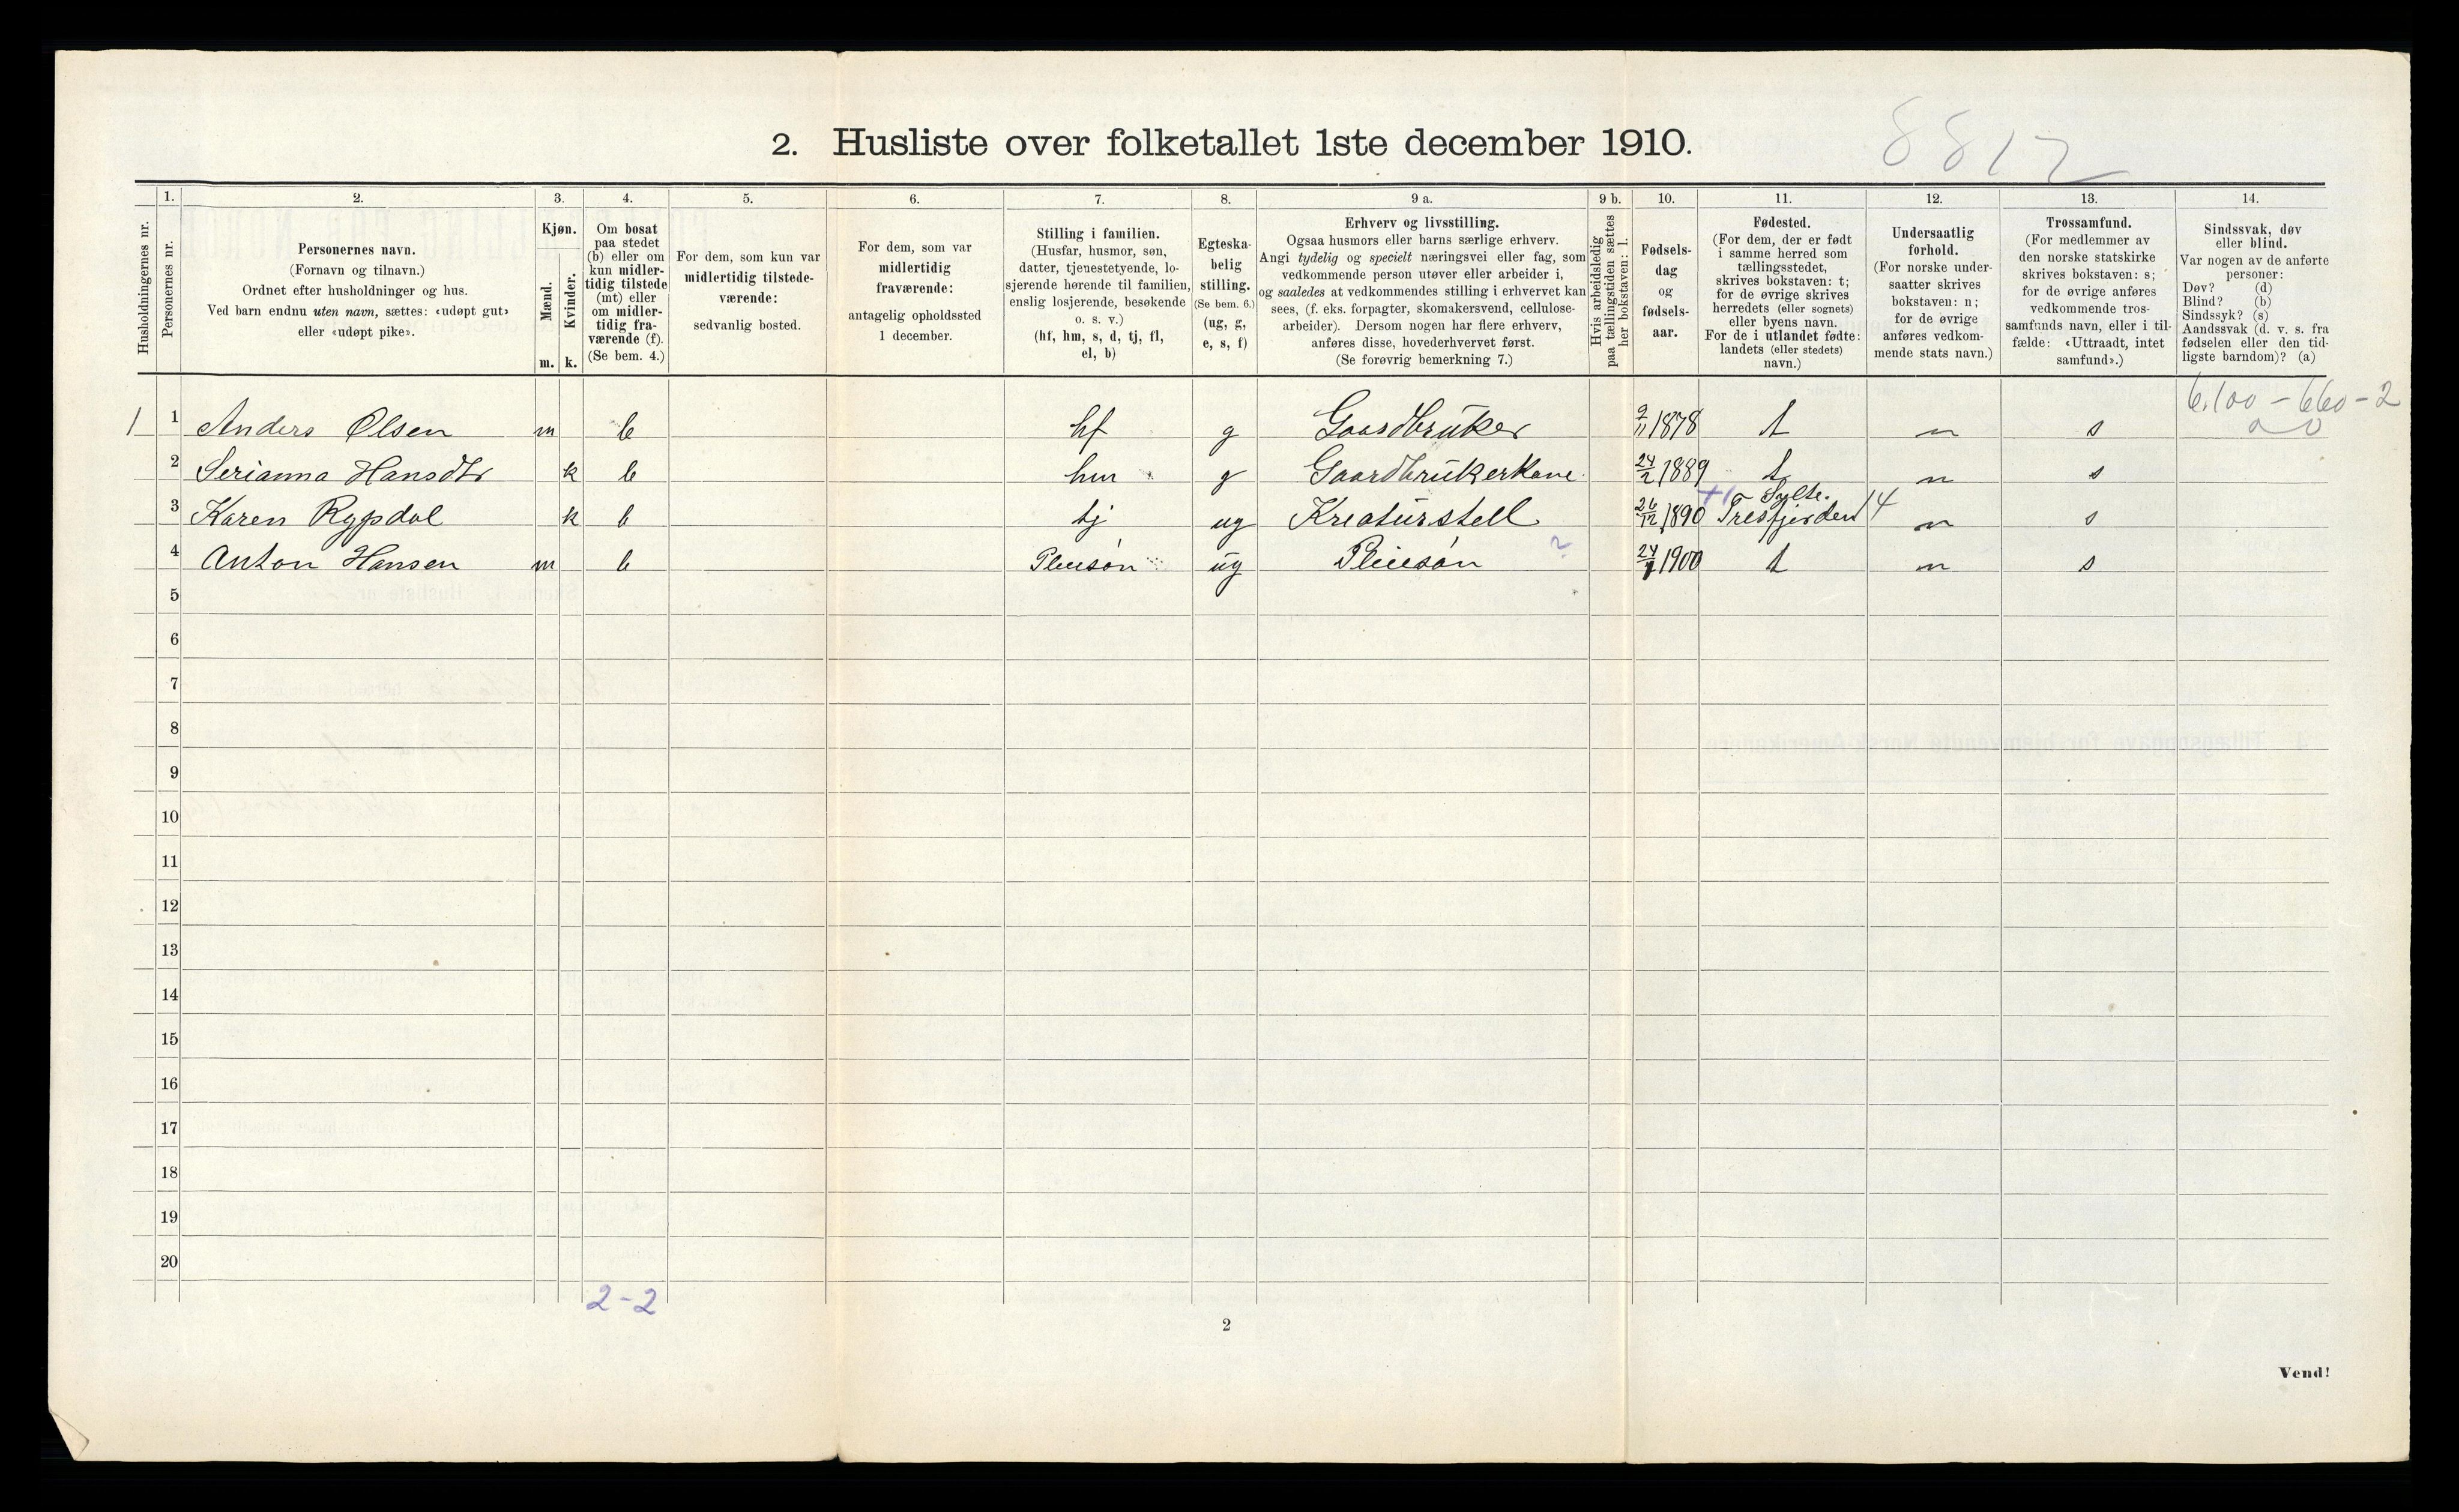 2. Husliste over folketallet 1ste december 1910.
8812
Husholdningernes nr.
1.
Personernes nr.
2.
Personernes navn.
(Fornavn og tilnavn.)
Ordnet efter husholdninger og hus.
Ved barn endnu uten navn, sættes: «udøpt gut»
eller «udøpt pike».
3.
Kjøn.
Mænd.
Kvinder.
m. k.
4.
Om bosat
paa stedet
(b) eller om
kun midler-
tidig tilstede
(mt) eller
om midler-
tidig fra-
værende (f).
(Se bem. 4.)
5.
For dem, som kun var
midlertidig tilstede-
værende:
sedvanlig bosted.
6.
For dem, som var
midlertidig
fraværende:
antagelig opholdssted
1 december.
7.
Stilling i familien.
(Husfar, husmor, søn,
datter, tjenestetyende, lo-
sjerende hørende til familien,
enslig losjerende, besøkende
o. s. v.)
(hf, hm, s, d, tj, fl,
el, b)
8.
Egteska-
belig
stilling.
(Se bem. 6.)
(ug, g,
e, s, f)
9 a.
Erhverv og livsstilling.
Ogsaa husmors eller barns særlige erhverv.
Angi tydelig og specielt næringsvei eller fag, som
vedkommende person utøver eller arbeider i,
og saaledes at vedkommendes stilling i erhvervet kan
sees, (f. eks. forpagter, skomakersvend, cellulose-
arbeider). Dersom nogen har flere erhverv,
anføres disse, hovederhvervet først.
(Se forøvrig bemerkning 7.)
9 b.
Hvis arbeidsledig
paa tællingstiden sættes
her bokstaven: l.
10.
Fødsels-
dag
og
fødsels-
aar.
11.
Fødested.
(For dem, der er født
i samme herred som
tællingsstedet,
skrives bokstaven: t;
for de øvrige skrives
herredets (eller sognets)
eller byens navn.
For de i utlandet fødte:
landets (eller stedets)
navn.)
12.
Undersaatlig
forhold.
(For norske under-
saatter skrives
bokstaven: n;
for de øvrige
anføres vedkom-
mende stats navn.)
13.
Trossamfund.
(For medlemmer av
den norske statskirke
skrives bokstaven: s;
for de øvrige anføres
vedkommende tros-
samfunds navn, eller i til-
fælde: «Uttraadt, intet
samfund».)
14.
Sindssvak, døv
eller blind.
Var nogen av de anførte
personer:
Døv? (d)
Blind? (b)
Sindssyk? (s)
Aandssvak (d. v. s. fra
fødselen eller den tid-
ligste barndom)? (a)
6.100 - 660 - 2
0 0
1 1 Anders Olsen m b hf g Gaardbruker 9/11 1878 t n s
2 Serianna Hansdtr k b hm g Gaardbrukerkone 24/2 1889 t n s
Sylte.
3 Karen Rypdal k b tj ug Kreaturstell 26/12 1890 Tresfjorden 14 n s
4 Anton Hansen m b Pleiesøn ug Pleiesøn ? 24/1 1900 t n s
5
6
7
8
9
10
11
12
13
14
15
16
17
18
19
20
2-2
2
Vend!